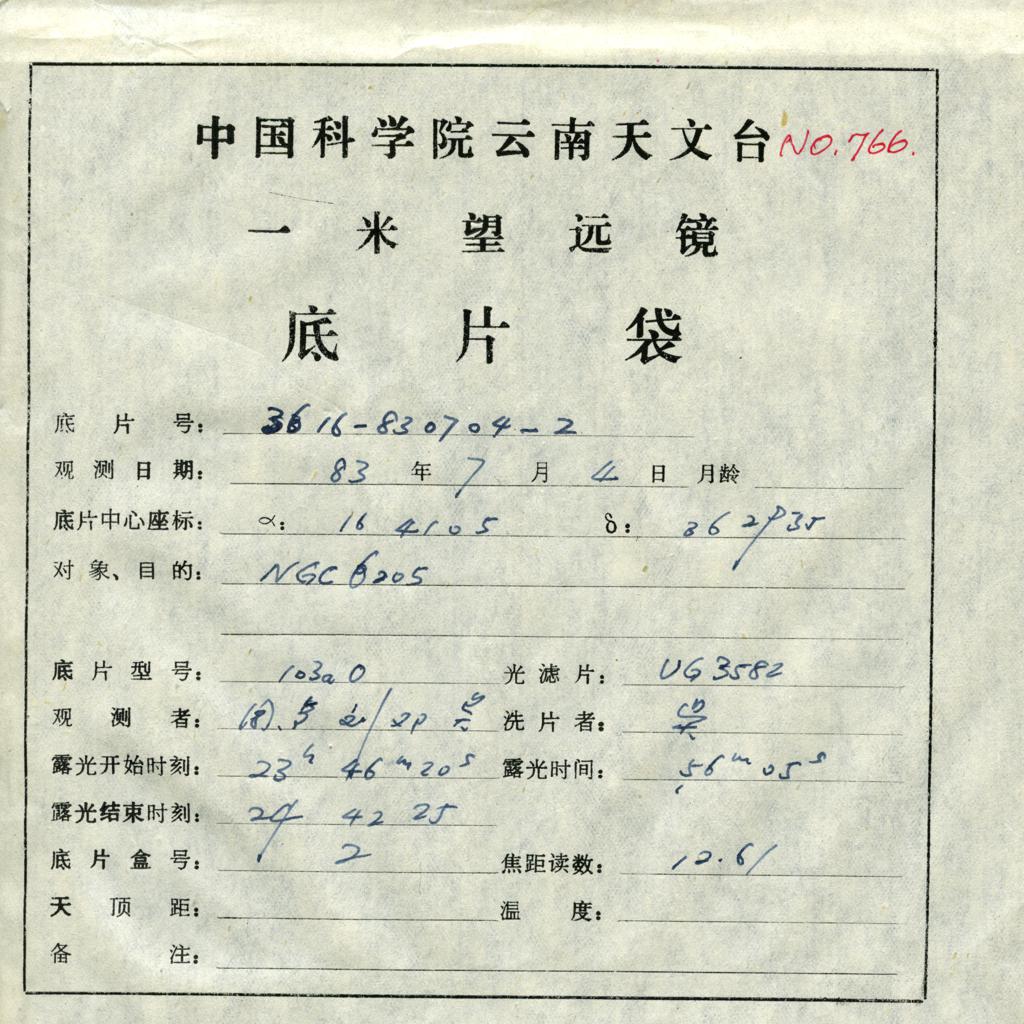 中国科学院云南天文台 NO.766.
一米望远镜
底片袋
底片号: 3616-830704-2
观测日期: 83 年 7 月 4 日 月龄
底片中心座标: α: 16 41 05 δ: 36 29 35
对象、目的: NGC 6205
底片型号: 103aO 光滤片: UG 3582
观测者: 洗片者: 吴
露光开始时刻: 23h 46m 20s 露光时间: 56m 05s
露光结束时刻: 24 42 25
底片盒号: 2 焦距读数: 12.61
天顶距: 温度:
备注: